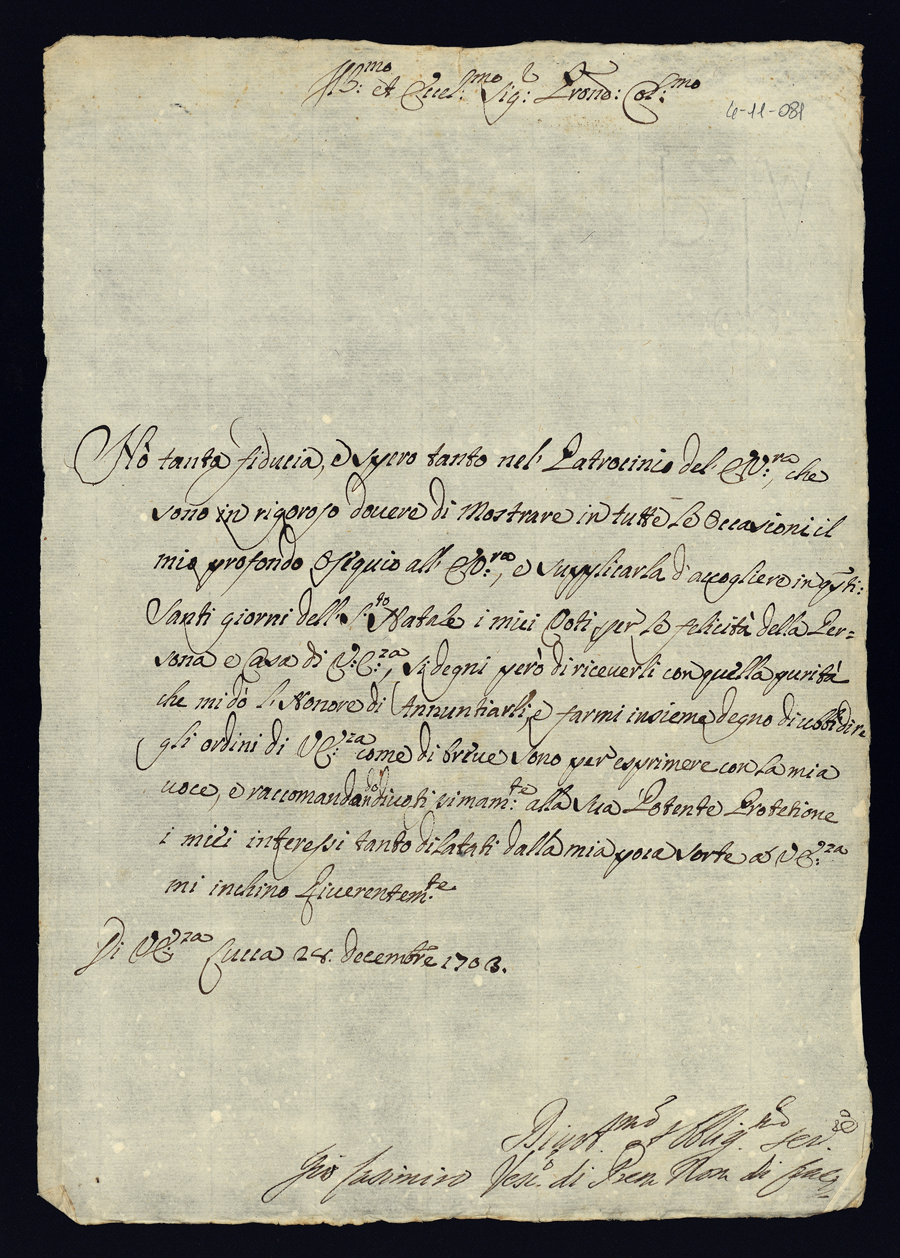 Ill:mo et Eccel:mo Sig:r Pron: Col:mo
4-11-081
Hò tanta fiducia, e spero tanto nel Patrocinio del E V:ra, che
sono in rigoroso dovere di Mostrare in tutte le Occasioni il
mio profondo Osequio all E V:ra, e supplicarla d'accogliere in qsti:
Santi giorni dell S:to Natale i miei Voti per le felicità della Per=
sona e Casa di V:E:za, Si degni però di riceverli con quella purità
che mi dò l Honore di Annuntiarli, e farmi insieme degno di ubbidire
gli ordini di V E:za come di breve sono per esprimere con la mia
voce, e raccomandando divotissimam:te alla sua Potente Protetione
i miei interessi tanto dilatati dalla mia poca sorte a V E:za
mi inchino Riverentem:te
Di V E:za Lucca 28. decembre 1703.
Divot:mo et Obblig:mo ser:re
Gio Casimiro Vesc:o di